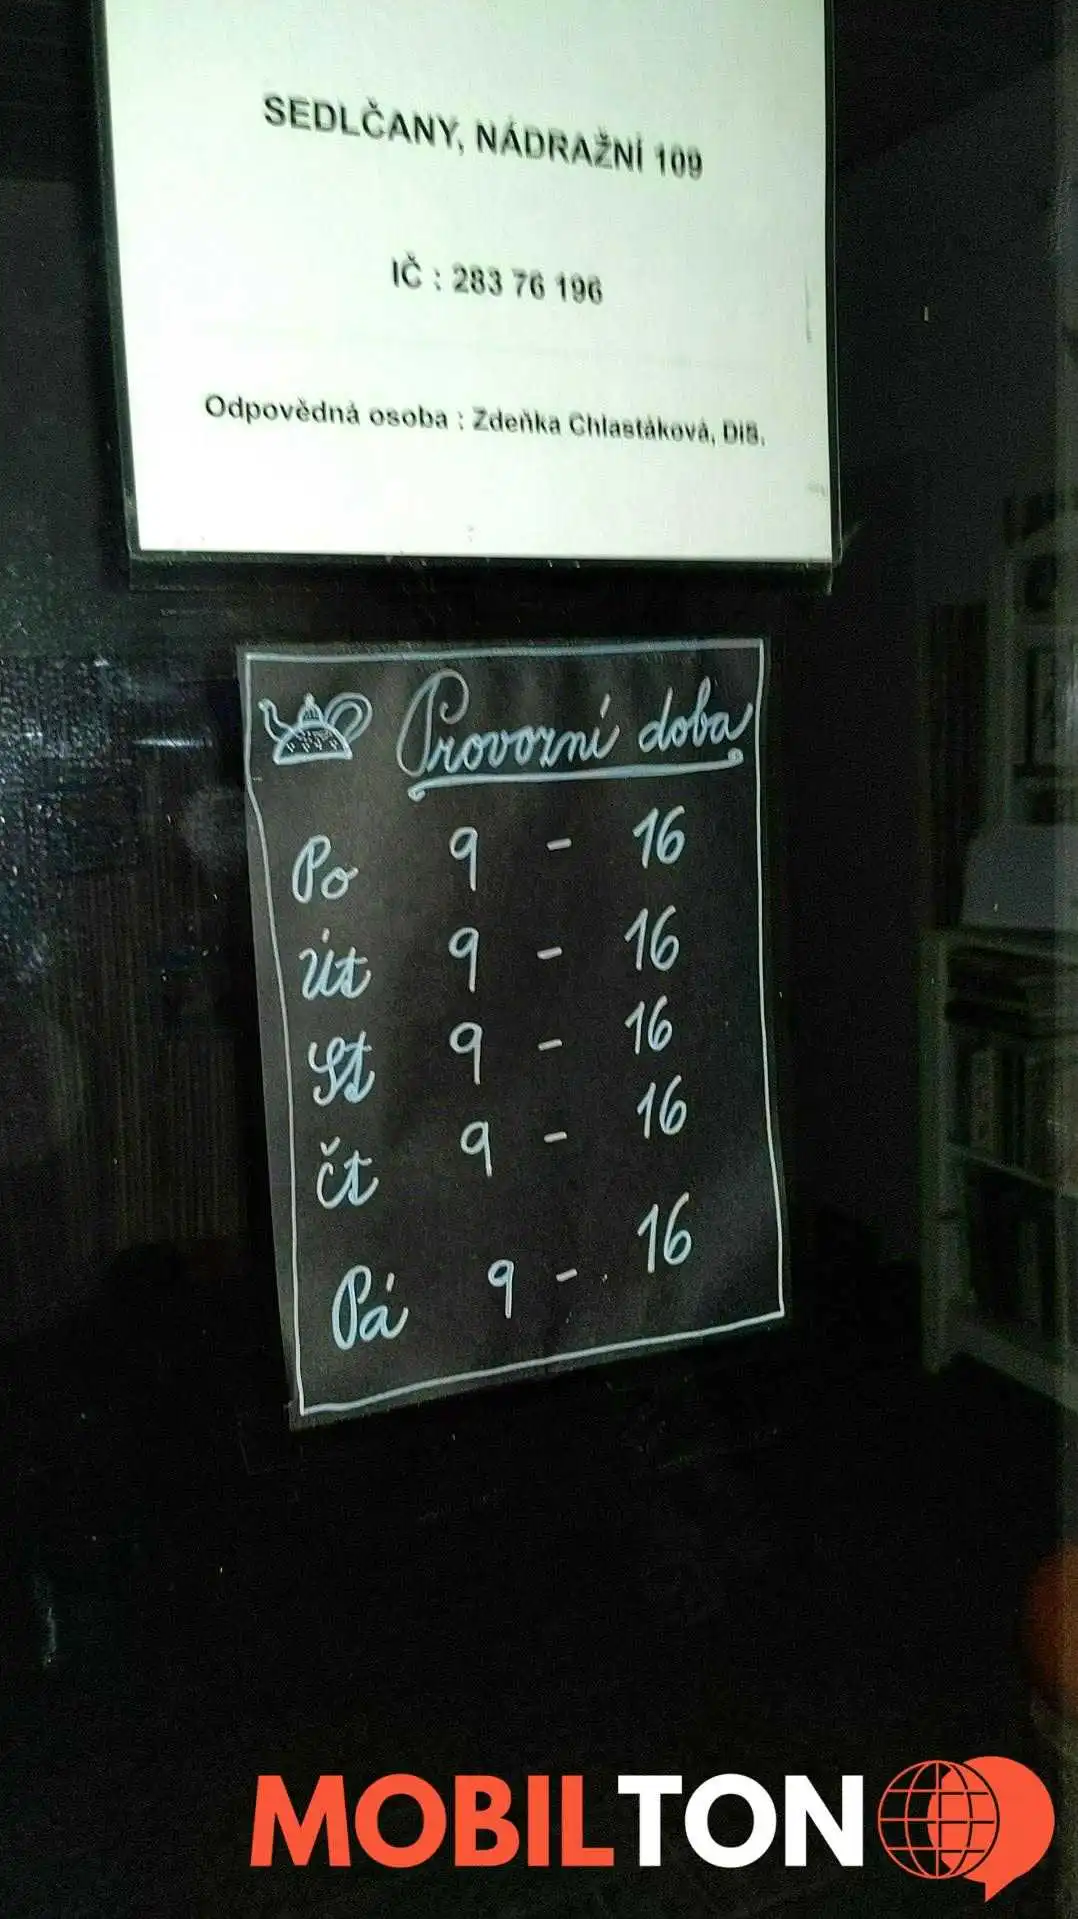 SEDLČANY, NÁDRAŽNÍ 109
IČ : 283 76 196
Odpovědná osoba : Zdeňka Chlastáková, DiS.
Provozní doba
Po 9 - 16
Út 9 - 16
St 9 - 16
Čt 9 - 16
Pá 9 - 16
MOBILTON